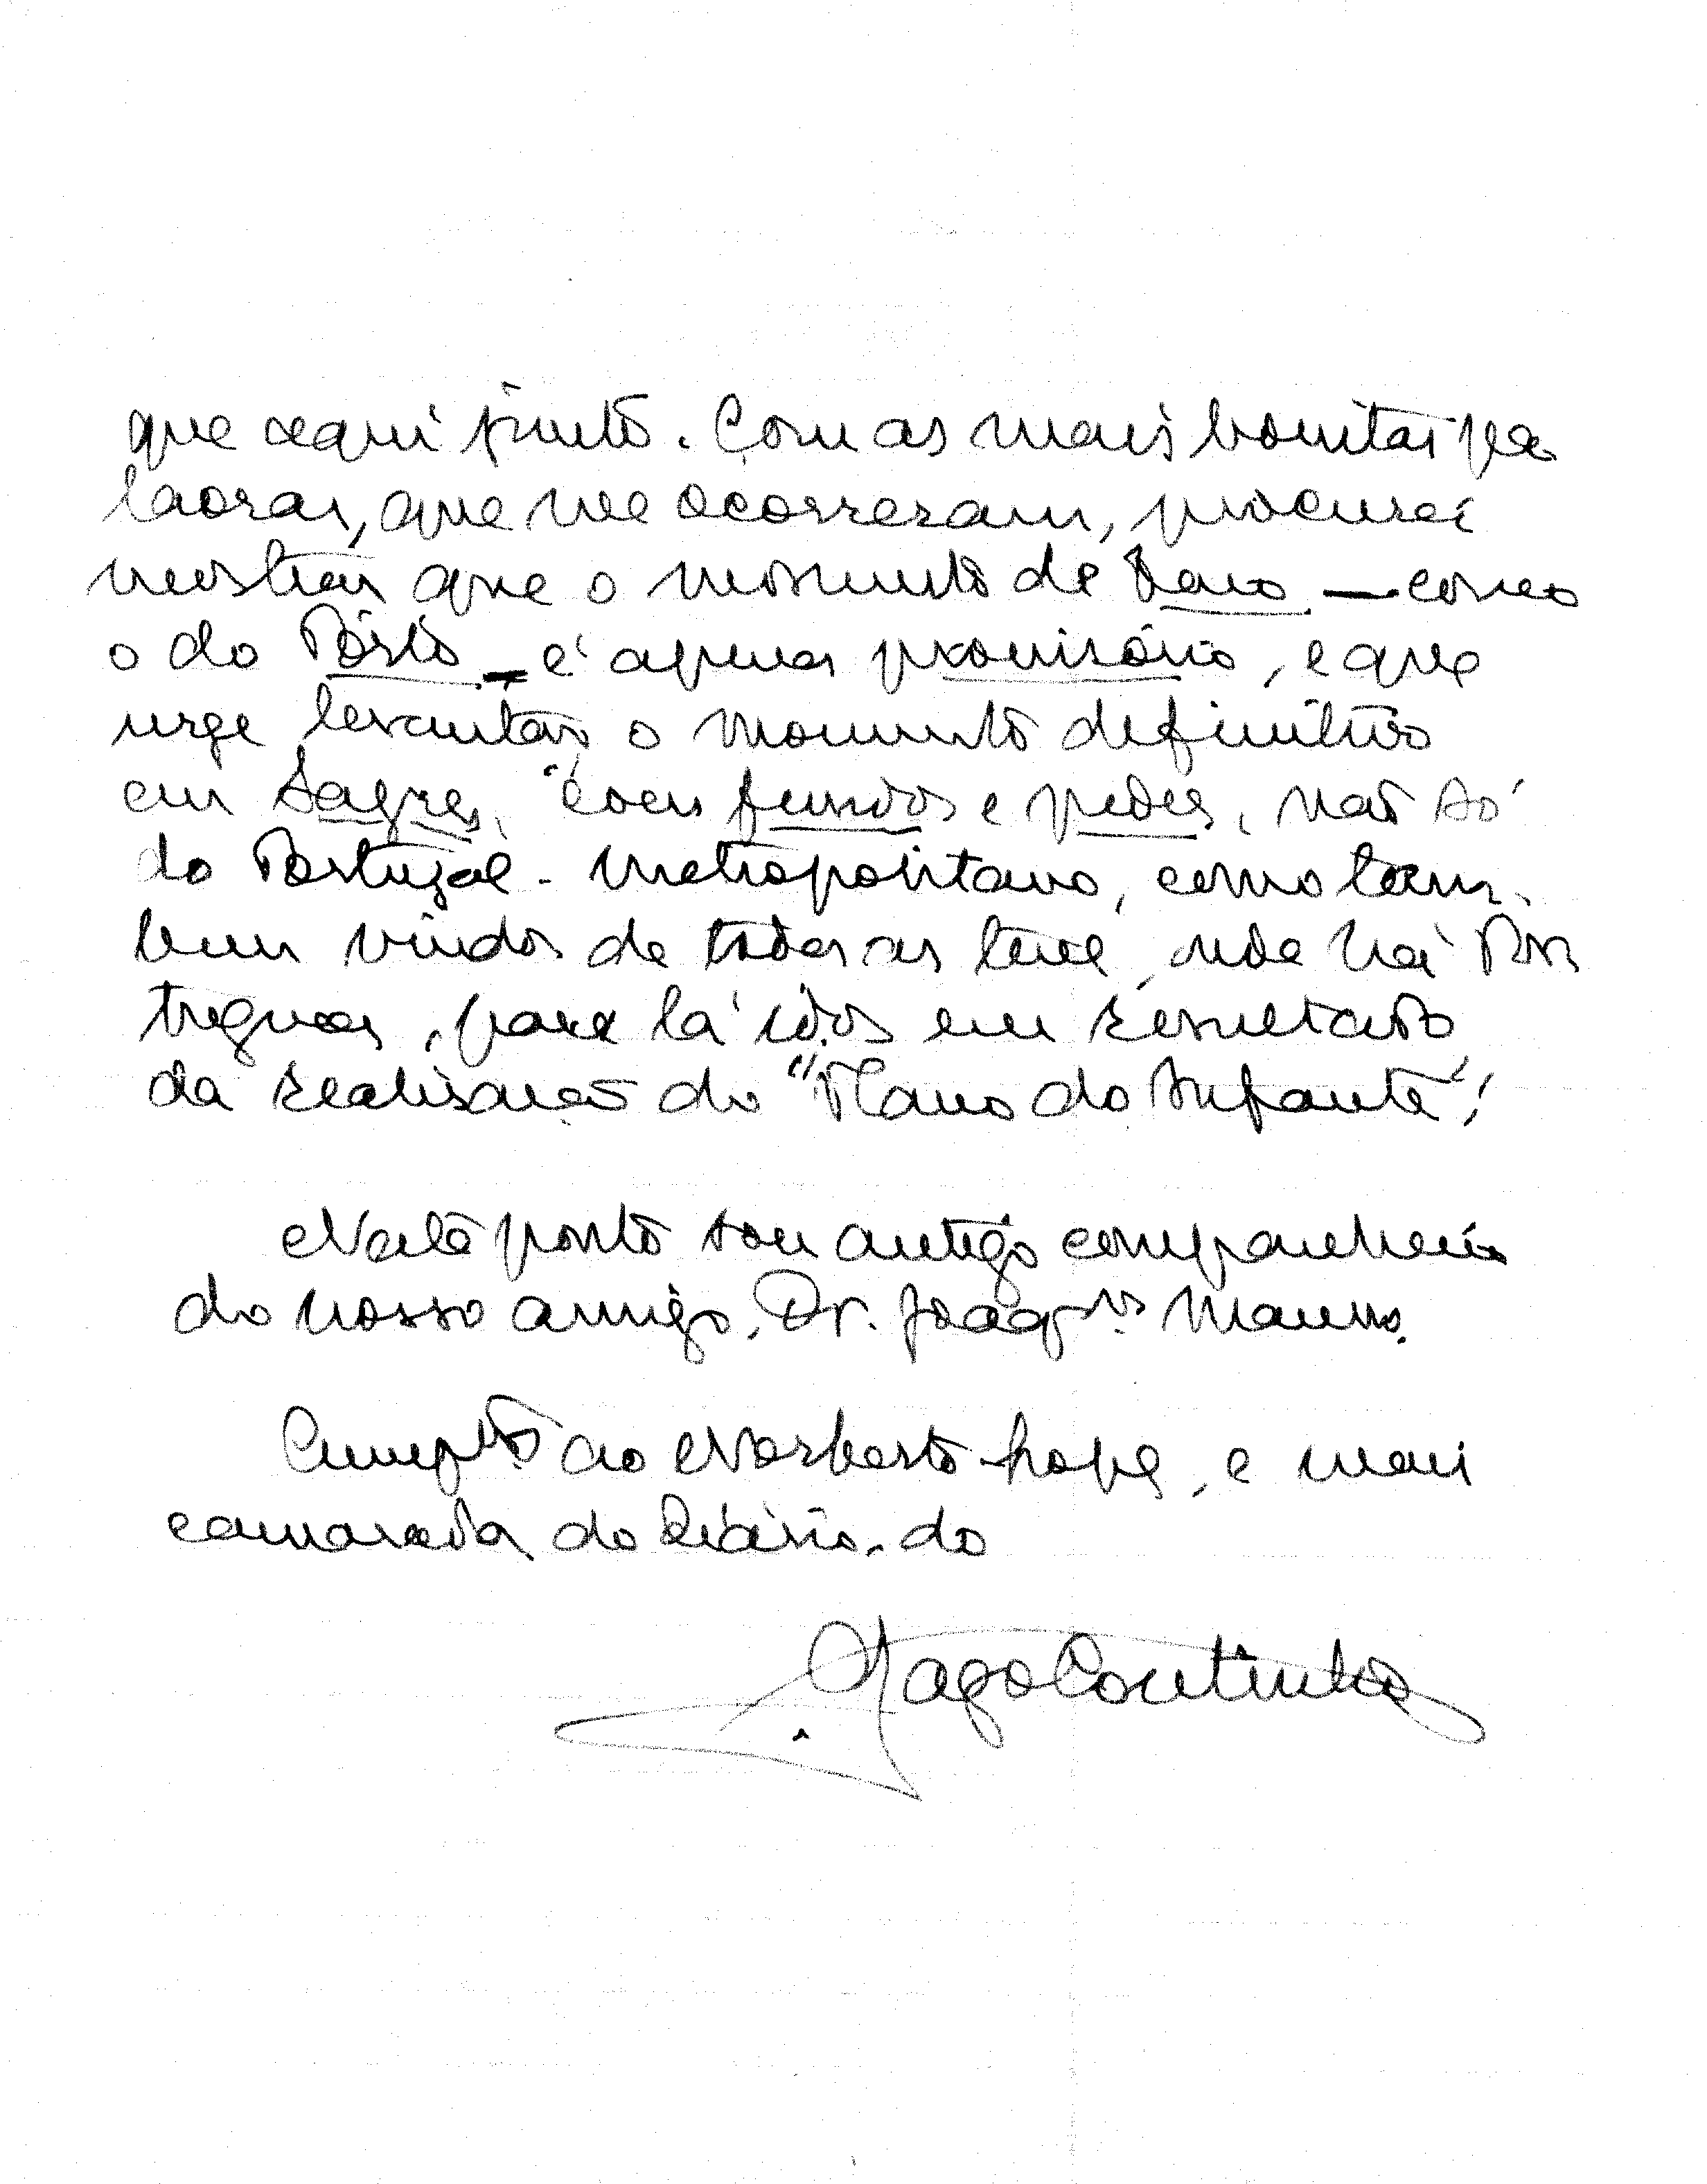 que aqui junto. Com as mais bonitas pa
lavras, que me ocorreram, procurei
mostrar que o monumento de — como
o do Pôrto — é apenas provisório, e que
urge levantar o monumento definitivo
em Sagres, com fundos e pedras, não só
do Portugal-metropolitano, como tam-
bem vindos de todas as terras, onde há Por
tugueses, para lá idos em resultado
da realisação do "Plano do Infante"!
Neste ponto sou antigo companheiro
do nosso amigo, Dr. Joaqᵐ Manso.
Cumpᵗᵒˢ ao Norberto Lopes, e mais
camaradas do Diário, do
Gago Coutinho